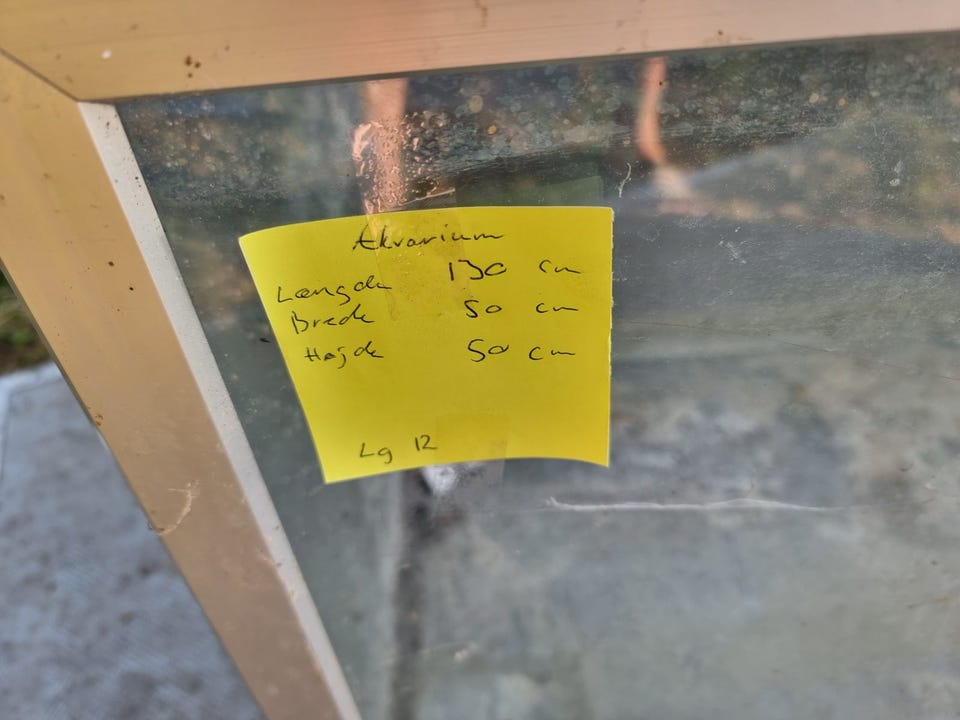 Akvarium
Længde 130 cm
Brede 50 cm
Højde 50 cm
Lg 12